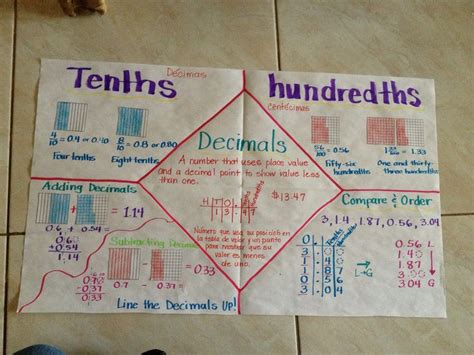 Tenths
Décimas
hundredths
Centécimas
4/10 = 0.4 or 0.40
8/10 = 0.8 or 0.80
Four tenths
Eight tenths
56/100 = 0.56
133/100 = 1.33
Fifty-six hundredths
One and thirty-three hundredths
Decimals
A number that uses place value
and a decimal point to show value less
than one.
H T O . Tenths Hundredths
1 3 . 4 7
$13.47
Número que usa su posición en
la tabla de valor y un punto
para mostrar que su
valor es menos
de uno.
Adding Decimals
+ = 1.14
0.6
+ 0.54
1.14
0.60
+0.54
1.14
Subtracting Decimals
- = 0.33
0.70
-0.37
0.33
Line the Decimals UP!
Compare & Order
3, 1.4, 1.87, 0.56, 3.04
O . Tenths Hundredths
3 . 0 0
1 . 4 0
1 . 8 7
0 . 5 6
3 . 0 4
L→G
0.56 L
1.40
1.87
3.00
3.04 G